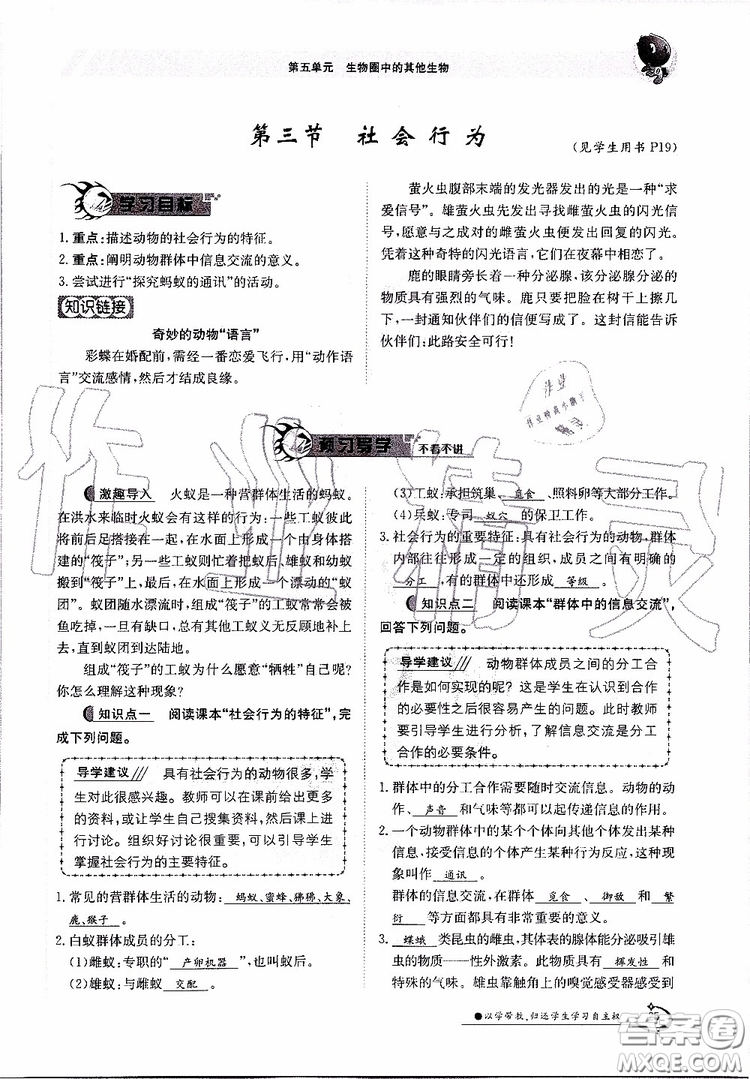 第五单元 生物圈中的其他生物
第三节 社会行为
(见学生用书 P19)
学习目标
1. 重点:描述动物的社会行为的特征。
2. 重点:阐明动物群体中信息交流的意义。
3. 尝试进行“探究蚂蚁的通讯”的活动。
知识链接
奇妙的动物“语言”
彩蝶在婚配前,需经一番恋爱飞行,用“动作语
言”交流感情,然后才结成良缘。
萤火虫腹部末端的发光器发出的光是一种“求
爱信号”。雄萤火虫不停地寻找雌萤火虫的闪光信
号,愿意与之成双的雌萤火虫便发出回复的闪光。
凭着这种奇特的闪光语言,它们在夜幕中相恋了。
鹿的眼睛旁长着一种分泌腺,该分泌腺分泌的
物质具有强烈的气味。鹿只要把脸在树干上擦几
下,一封通知伙伴们的信便写成了。这封信能告诉
伙伴们:此路安全可行!
预习导学 不看不讲
激趣导入 火蚁是一种营群体生活的蚂蚁。
在洪水来临时火蚁会有这样的行为:一些工蚁彼此
将前后足搭接在一起,在水面上形成一个由身体搭
建的“筏子”;另一些工蚁则驱使蚁后、雄蚁和幼蚁
搬到“筏子”上,然后,在水面上形成一个漂动的“蚁
团”。蚁团随水流漂流时,组成“筏子”的工蚁常常被
鱼吃掉,一旦有缺口,总有其他工蚁及时地补上,直
到蚁团到达陆地。
组成“筏子”的工蚁为什么愿意“牺牲”自己呢?
你怎么理解这种现象?
知识点一 阅读课本“社会行为的特征”,完
成下列问题。
导学建议 具有社会行为的动物很多,学
生对此很感兴趣。教师可以在课前给出更多
的资料,或让学生自己搜集资料,然后在课上
进行讨论。组织好讨论很重要,可以引导学生
掌握社会行为的主要特征。
1. 常见的营群体生活的动物: 蚂蚁、蜜蜂、狒狒、大象、
鹿、猴子 。
2. 白蚁群体成员的分工:
(1)雌蚁:专职的“ 产卵机器 ”,也叫蚁后。
(2)雄蚁:与雌蚁 交配 。
(3)工蚁:承担筑巢、 觅食 、照料卵等大部分工作。
(4)兵蚁:专司 蚁穴 的保卫工作。
3. 社会行为的重要特征:具有社会行为的动物,群体
内部往往形成一定的组织,成员之间有明确的
分工 ,有的群体中还形成 等级 。
知识点二 阅读课本“群体中的信息交流”,
回答下列问题。
导学建议 动物群体成员之间的分工合
作是如何实现的呢?这是学生在认识到合作
的必要性之后很容易产生的问题。此时教师
要引导学生进行分析,了解信息交流是分工合
作的必要条件。
1. 群体中的分工合作需要随时交流信息。动物的动
作、 声音 和气味等都可以起传递信息的作用。
2. 一个动物群体中的某个个体向其他个体发出某种
信息,接受信息的个体产生某种行为反应,这种
现象叫作 通讯 。
群体的信息交流,在群体 觅食 、 御敌 和 繁
衍 等方面都具有非常重要的意义。
3. 蝶蛾 类昆虫的雌虫,其体表的腺体能分泌吸引雄
虫的物质——性外激素。这种物质具有 挥发性 和
特殊的气味。雄虫靠触角上的嗅觉感受器感受到
以学带教,归还学生学习自主权
作业精灵
答案圈
MXQE.COM